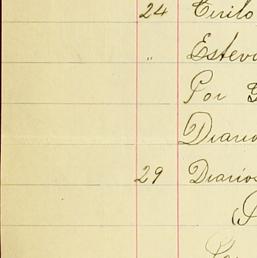 24 Cirilo
" Estev
Por
Diario
29 Diarios